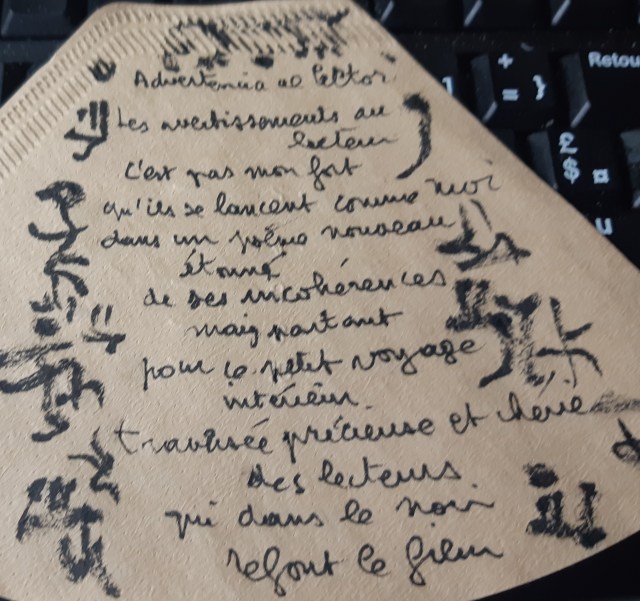 Advertencia al lettor
Les avertissements au
lecteur
c'est pas mon fort
qu'ils se lancent comme moi
dans un poème nouveau
étonné
de ses incohérences
mais partant
pour ce petit voyage
intérieur.
traversée précieuse et chérie
des lecteurs
qui dans le noir
refont le film
Retou
+
= }
£
$ ¤
U